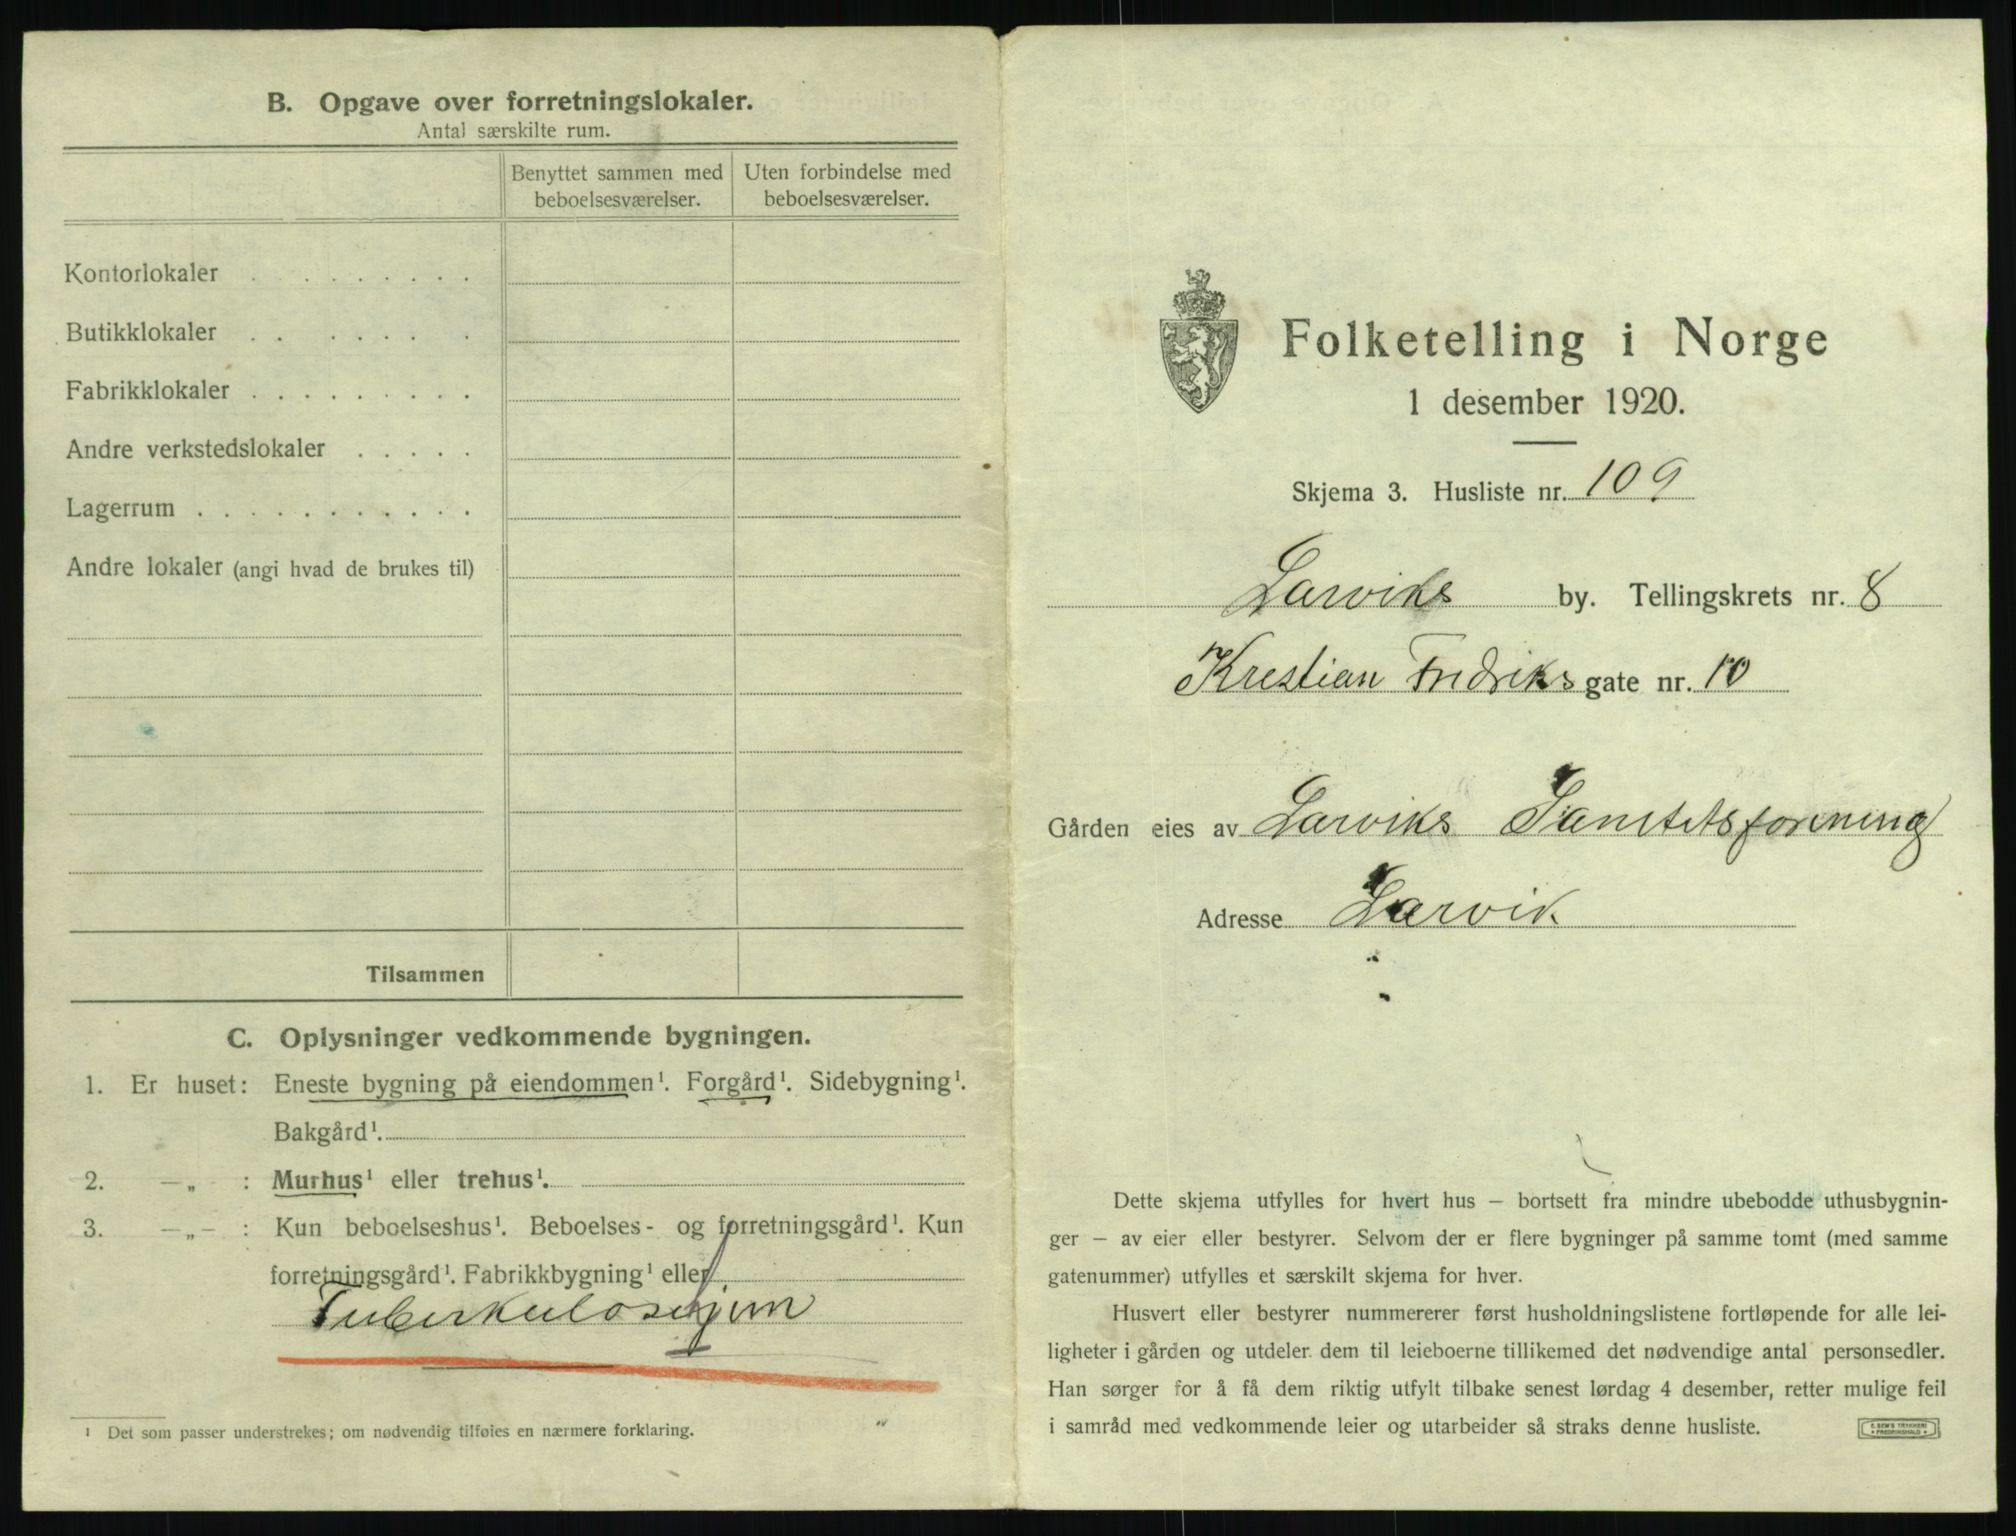 B. Opgave over forretningslokaler.
Antal særskilte rum.
Benyttet sammen med beboelsesværelser.
Uten forbindelse med beboelsesværelser.
Kontorlokaler . . . . . . . . .
Butikklokaler . . . . . . . .
Fabrikklokaler . . . . . . . . .
Andre verkstedslokaler . . . . .
Lagerrum . . . . . . . . . . .
Andre lokaler (angi hvad de brukes til)
Tilsammen
C. Oplysninger vedkommende bygningen.
1. Er huset: Eneste bygning på eiendommen¹. Forgård¹. Sidebygning¹.
Bakgård¹.
2. —„ : Murhus¹ eller trehus¹.
3. —„— : Kun beboelseshus¹. Beboelses- og forretningsgård¹. Kun
forretningsgård¹. Fabrikkbygning¹ eller
Tuberkulosehjem
¹ Det som passer understrekes; om nødvendig tilføies en nærmere forklaring.
Folketelling i Norge
1 desember 1920.
Skjema 3. Husliste nr. 109
Larviks by. Tellingskrets nr. 8
Krestian Fredriks gate nr. 10
Gården eies av Larviks Sanitetsforening
Adresse Larvik
Dette skjema utfylles for hvert hus — bortsett fra mindre ubebodde uthusbygnin-
ger — av eier eller bestyrer. Selvom der er flere bygninger på samme tomt (med samme
gatenummer) utfylles et særskilt skjema for hver.
Husvert eller bestyrer nummererer først husholdningslistene fortløpende for alle lei-
ligheter i gården og utdeler dem til leieboerne tillikemed det nødvendige antal personsedler.
Han sørger for å få dem riktig utfylt tilbake senest lørdag 4 desember, retter mulige feil
i samråd med vedkommende leier og utarbeider så straks denne husliste.
E. SEM'S TRYKKERI
FREDRIKSHALD